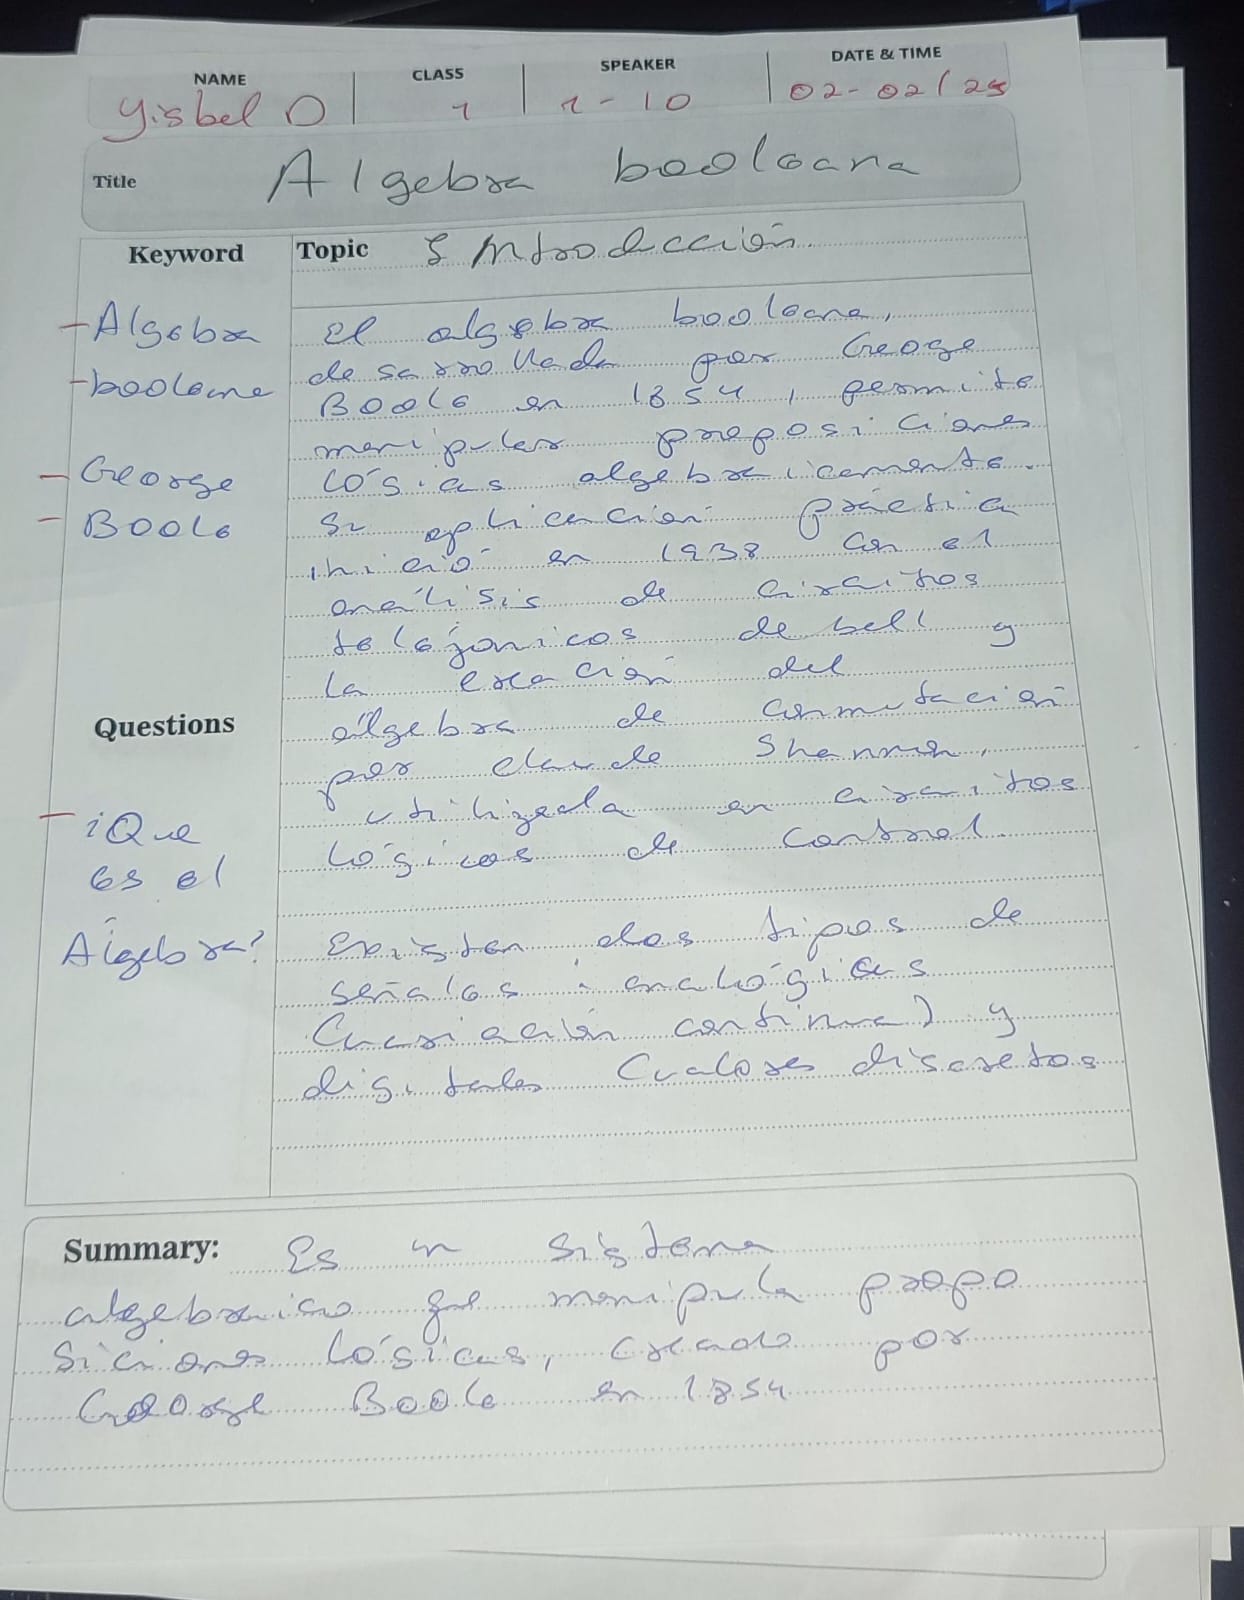 NAME CLASS SPEAKER DATE & TIME
Yisbel O 1 1-10 02-02/25
Title Algebra booleana
Keyword
- Algebra
- booleana
- George
- Boole
Questions
- ¿Que
es el
Algebra?
Topic Introducción.
El algebra booleana,
desarrollada por George
Boole en 1854, permite
manipular proposiciones
lógicas algebraicamente.
Su aplicación práctica
inició en 1938 con el
análisis de circuitos
telefonicos de bell y
la creación del
álgebra de conmutación
por claude Shannon,
utilizada en circuitos
lógicos de control.
Existen dos tipos de
señales: analógicas
(variación continua) y
digitales (valores discretos
Summary: Es un sistema
algebraico que manipula propo
siciones lógicas, creado por
George Boole en 1854